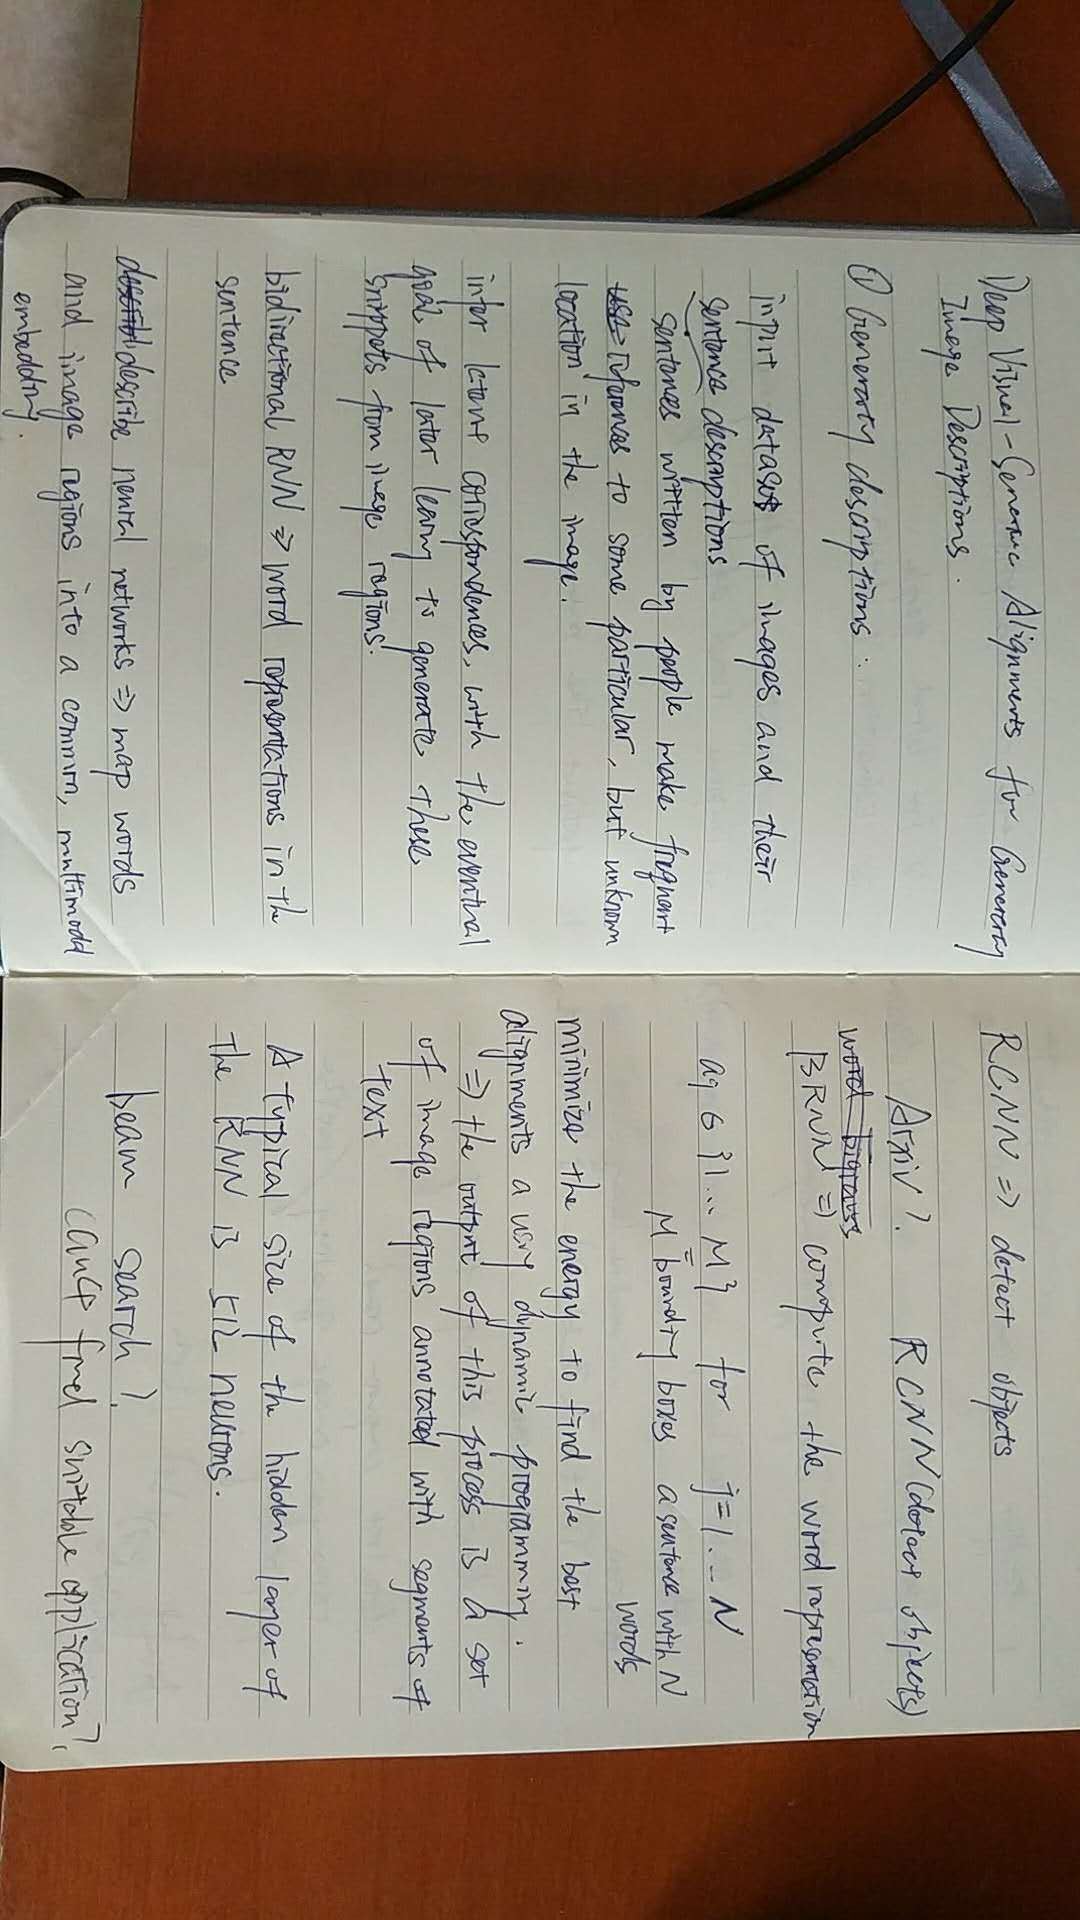 Deep Visual-Semantic Alignments for Generating
Image Descriptions.
① Generating descriptions:
input datasets of images and their
sentence descriptions
sentences written by people make frequent
references to some particular, but unknown
location in the image.
infer latent correspondences, with the eventual
goal of later learning to generate these
snippets from image regions.
bidirectional RNN ⇒ word representations in the
sentence
describe neural networks ⇒ map words
and image regions into a common, multimodal
embedding.
RCNN ⇒ detect objects
Arxiv? RCNN (detect objects)
word bigrams
BRNN ⇒ compute the word representation
aj ∈ {1... M} for j=1...N
M boundry boxes a sentence with N
words
minimize the energy to find the best
alignments a using dynamic programming.
⇒ the output of this process is a set
of image regions annotated with segments of
text
A typical size of the hidden layer of
the RNN is 512 neurons.
beam search?
find suitable application?